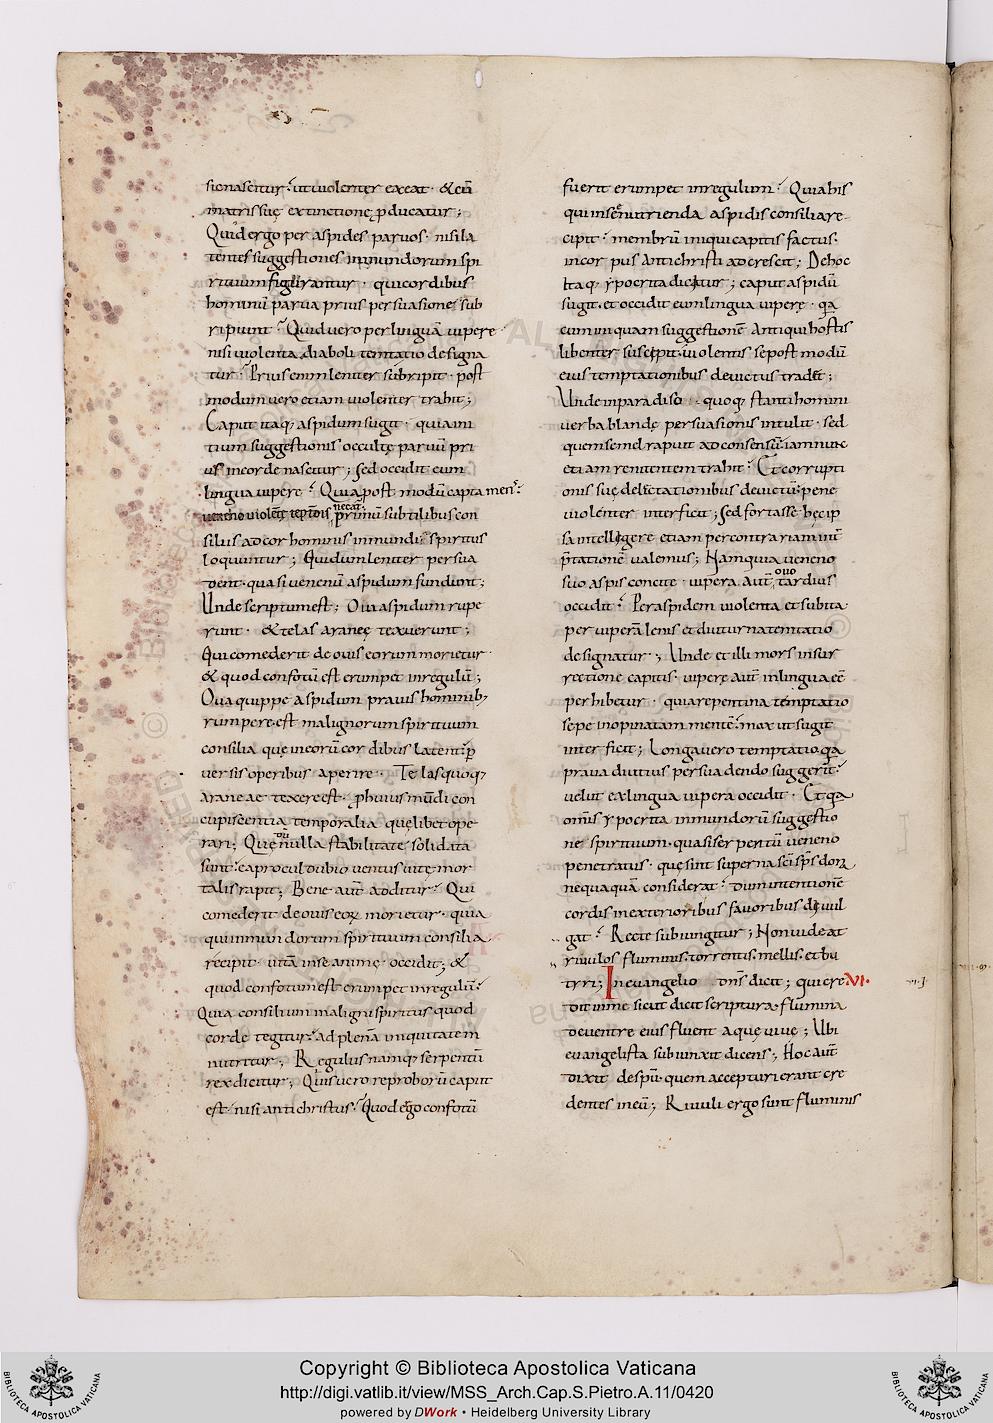 sic nascitur ut violenter exeat · & cū
matris suę extinctione ꝑducatur ;
Quid ergo per aspides parvos · nisi la
tentes suggestiones inmundorum spi
rituum figurantur · qui cordibus
hominū parva prius persuasione sub
ripiunt · Quid vero per linguā vipere
nisi violenta diaboli temtatio designa
tur · Prius enim leniter subripit · post
modum vero etiam violenter trahit ;
Caput itaq; aspidum sugit · quia ini
tium suggestionis occultę parvū pri
us incorde nascitur ; Sed occidit eum
lingua vipere · Quia post modū capta mens
veneno violentę temptationis necatur primū subtilibus con
siliis ad cor hominis inmundi spiritus
loquuntur ; Qui dum leniter persua
dent · quasi venenū aspidum fundunt ;
Unde scriptum est ; Ova aspidum rupe
runt · & telas araneę texuerunt ;
Qui comederit de ovis eorum morietur ·
& quod confotū est erumpet in regulū ;
Ova quippe aspidum pravis hominib;
rumpere est malignorum spirituum
consilia que in eorū cordibus latent ꝑ
versis operibus aperire · Telas quoq;
araneae texere est · ꝓ huius mūdi con
cupiscentia temporalia quęlibet ope
rari ; Quę dū nulla stabilitate solidata
sunt · ea procul dubio ventus vitę mor
talis rapit ; Bene aut̄ additur · Qui
comederit de ovis eorꝝ morietur · quia
qui inmundorum spirituum consilia
recipit · vitā in se animę occidit ; &
quod confotum est erumpet in regulū ·
Quia consilium maligni spiritus quod
corde tegitur · ad plenā iniquitatem
nutritur ; Regulus namq; serpentū
rex dicitur ; Quis vero reproborū caput
est · nisi antichristus · Quod ergo confotū
fuerit erumpet in regulum · Quia his
qui in se nutrienda aspidis consilia re-
cipit · membrū iniqui capitis factus ·
in corpus Antichristi adcrescit ; De hoc
itaq; ypocrita dicitur ; caput aspidū
suget · et occidit eum lingua vipere · q̄a
cum inquam suggestionē Antiqui hostis
libenter suscipit · violentis se post modū
eius temptationibus devictus tradet ;
Unde in paradiso · quoq; stanti homini
verba blandę persuasionis intulit · sed
quem semel rapuit ad consensū · iam nunc
etiam renitentem trahit · Et corrupti
onis suę delectationibus devictū · pene
violenter interficit ; Sed fortasse hęc ip
sa intellegere etiam per contrariam int̄
p̄tationē valemus ; Nam quia veneno
suo aspis concite · vipera aut̄ suo tardius
occidit · Per aspidem violenta et subita ·
per viperā lenis et diuturna temtatio
designatur · ; Unde et illi mors in sur
rectione capitis · vipere aut̄ in lingua eē
perhibetur · quia repentina temptatio
sepe inopinatam mentē · mox ut sugit
interficit ; Longa vero temptatio q̄a
prava diutius persuadendo suggerit ·
velut ex lingua vipera occidit · Et q̄a
omīs ypocrita inmundorū suggestio
ne spirituum · quasi serpentū veneno
penetratus · que sint superna sc̄i sp̄s dona
nequaquā considerat · dum intentionē
cordis in exterioribus favoribus divul
gat · Recte subiungitur ; Non videat
rivulos fluminis · torrentis · mellis · et bu
tyri ; In evangelio dn̄s dicit ; qui cre VI ·
dit in me sicut dicit scriptura · flumina
de ventre eius fluent aquę vivę ; Ubi
evangelista subiunxit dicens ; Hoc aut̄
dixit de sp̄u · quem accepturi erant cre
dentes in eū ; Rivuli ergo sunt fluminis
Copyright © Biblioteca Apostolica Vaticana
http://digi.vatlib.it/view/MSS_Arch.Cap.S.Pietro.A.11/0420
powered by DWork • Heidelberg University Library
BIBLIOTECA APOSTOLICA VATICANA
BIBLIOTECA APOSTOLICA VATICANA